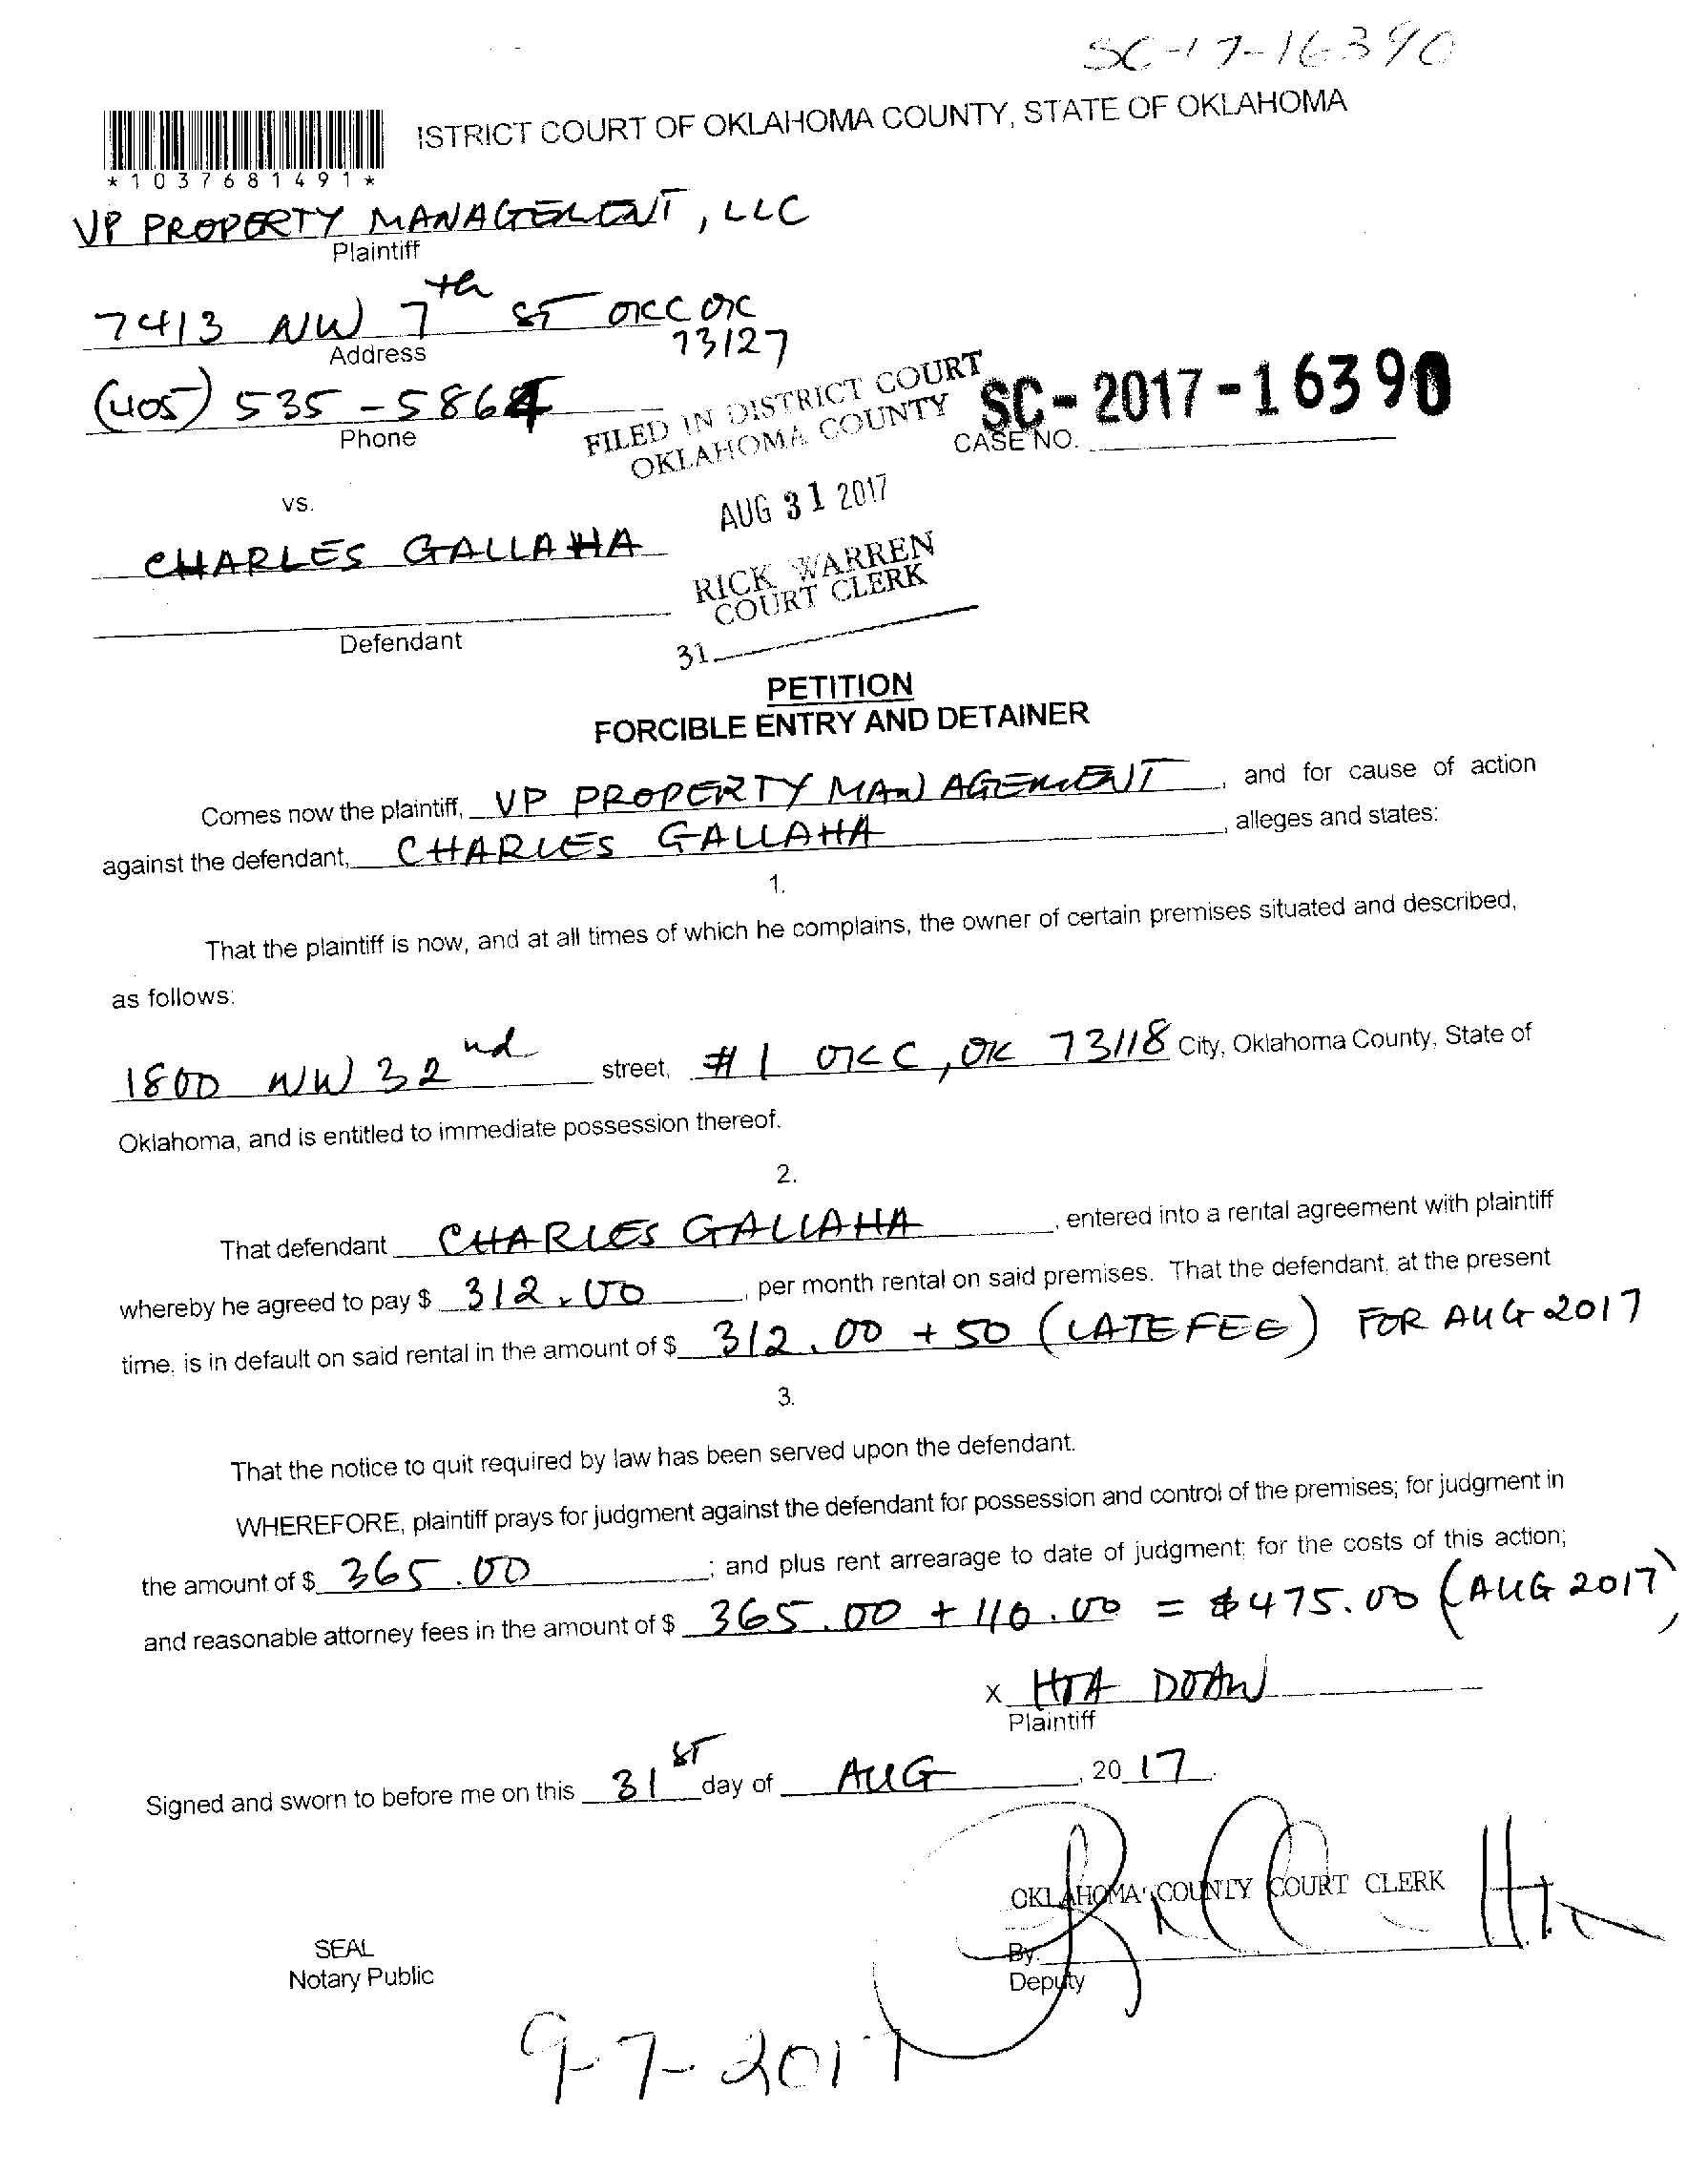 SC-17-16390
ISTRICT COURT OF OKLAHOMA COUNTY, STATE OF OKLAHOMA
*1037681491*
VP PROPERTY MANAGEMENT, LLC
Plaintiff
7413 NW 7th ST OKC OK
73127
Address
(405) 535-5864
Phone
FILED IN DISTRICT COURT
OKLAHOMA COUNTY
SC-2017-16390
CASE NO.
vs.
AUG 31 2017
CHARLES GALLAHA
RICK WARREN
COURT CLERK
Defendant
31
PETITION
FORCIBLE ENTRY AND DETAINER
Comes now the plaintiff, VP PROPERTY MANAGEMENT, and for cause of action
against the defendant, CHARLES GALLAHA, alleges and states:
1.
That the plaintiff is now, and at all times of which he complains, the owner of certain premises situated and described,
as follows:
1800 NW 32nd street, #1 OKC, OK 73118 City, Oklahoma County, State of
Oklahoma, and is entitled to immediate possession thereof.
2.
That defendant CHARLES GALLAHA, entered into a rental agreement with plaintiff
whereby he agreed to pay $ 312.00, per month rental on said premises. That the defendant, at the present
time, is in default on said rental in the amount of $ 312.00 + 50 (LATE FEE) FOR AUG 2017
3.
That the notice to quit required by law has been served upon the defendant.
WHEREFORE, plaintiff prays for judgment against the defendant for possession and control of the premises; for judgment in
the amount of $ 365.00; and plus rent arrearage to date of judgment; for the costs of this action;
and reasonable attorney fees in the amount of $ 365.00 + 110.00 = $475.00 (AUG 2017)
X HOA DOAN
Plaintiff
Signed and sworn to before me on this 31ST day of AUG, 20 17.
OKLAHOMA COUNTY COURT CLERK
SEAL
Notary Public
By:
Deputy
9-7-2017